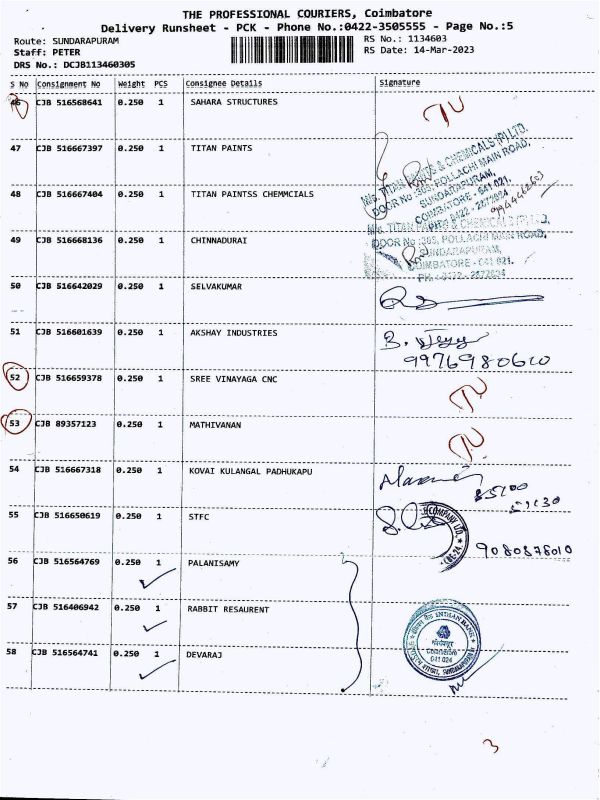 THE PROFESSIONAL COURIERS, Coimbatore
Delivery Runsheet - PCK - Phone No.:0422-3505555 - Page No.:5
Route: SUNDARAPURAM RS No.: 1134603
Staff: PETER RS Date: 14-Mar-2023
DRS No.: DCJB113460305
S No Consignment No Weight PCS Consignee Details Signature
46 CJB 516568641 0.250 1 SAHARA STRUCTURES
47 CJB 516667397 0.250 1 TITAN PAINTS
48 CJB 516667404 0.250 1 TITAN PAINTSS CHEMMCIALS
M/s. TITAN PAINTS & CHEMICALS (P) LTD.
DOOR No :389, POLLACHI MAIN ROAD,
SUNDARAPURAM,
COIMBATORE - 641 021.
49 CJB 516668136 0.250 1 CHINNADURAI
M/s. TITAN PAINTS & CHEMICALS (P) LTD.
DOOR No :389, POLLACHI MAIN ROAD,
SUNDARAPURAM,
COIMBATORE - 641 021.
50 CJB 516642029 0.250 1 SELVAKUMAR
51 CJB 516601639 0.250 1 AKSHAY INDUSTRIES
9976980610
52 CJB 516659378 0.250 1 SREE VINAYAGA CNC
53 CJB 89357123 0.250 1 MATHIVANAN
54 CJB 516667318 0.250 1 KOVAI KULANGAL PADHUKAPU
55 CJB 516650619 0.250 1 STFC
9080878010
56 CJB 516564769 0.250 1 PALANISAMY
57 CJB 516406942 0.250 1 RABBIT RESAURENT
INDIAN BANK
641 024
58 CJB 516564741 0.250 1 DEVARAJ
3